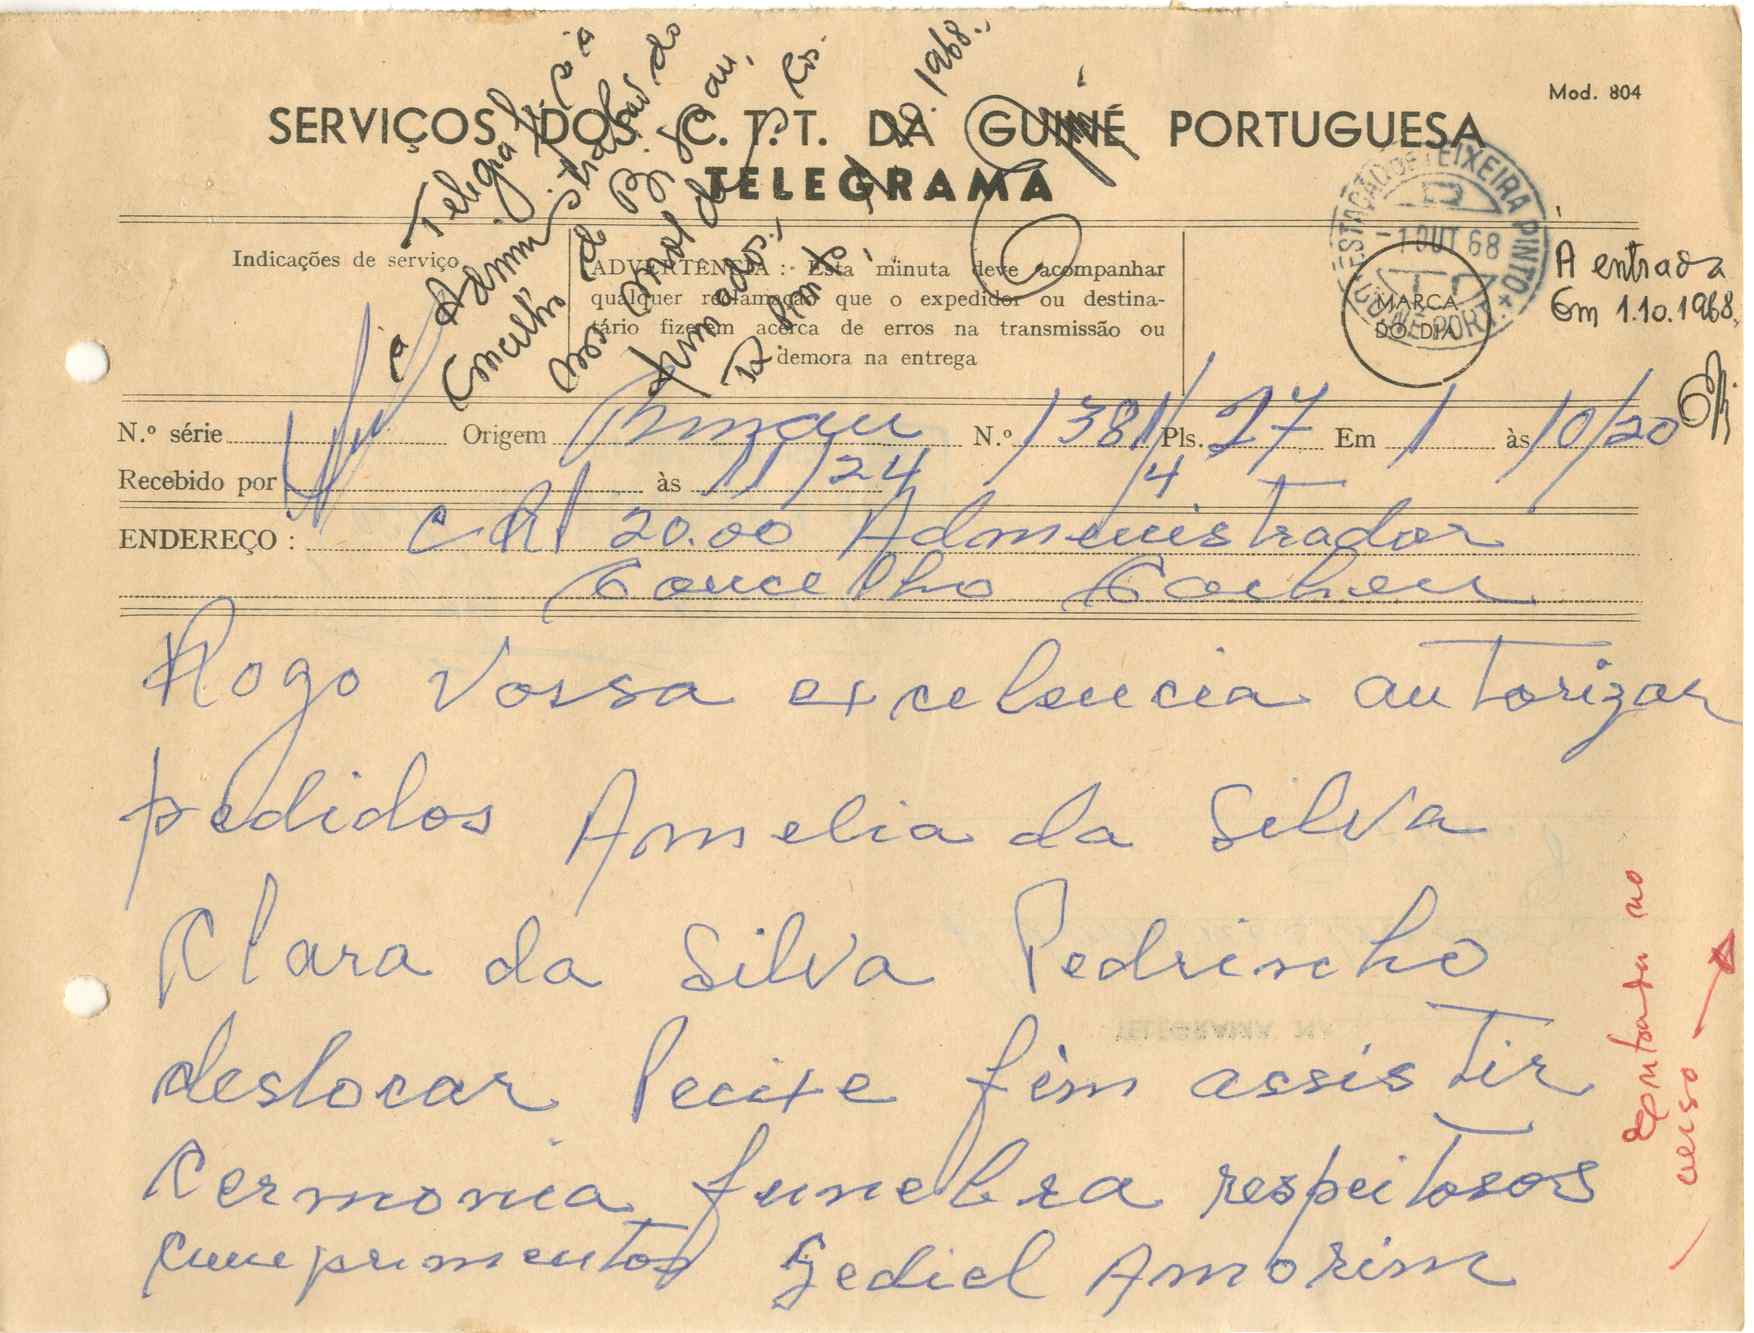 Mod. 804
SERVIÇOS DOS C. T. T. DA GUINÉ PORTUGUESA
TELEGRAMA
Telegrafica-
à Administrador do
Concelho de Bissau,
dos
1968.
ESTAÇÃO DE TEIXEIRA PINTO
-1 OUT 68
GUINÉ PORT.
MARCA
DO DIA
À entrada
Em 1.10.1968.
Indicações de serviço
ADVERTÊNCIA :- Esta minuta deve acompanhar
qualquer reclamação que o expedidor ou destina-
tário fizerem acerca de erros na transmissão ou
demora na entrega
N.º série Origem Bissau N.º 1381/ Pls. 27 Em 1 às 10/20
Recebido por às 11/24 /4
ENDEREÇO : 20.00 Administrador
Concelho Cacheu
Rogo Vossa excelencia autorizar
pedidos Amelia da Silva
Clara da Silva Pedrincho
deslocar Pecixe fim assistir
Cermonia funebra respeitosos
Cumprimentos Gediel Amorim
Contrada no
verso